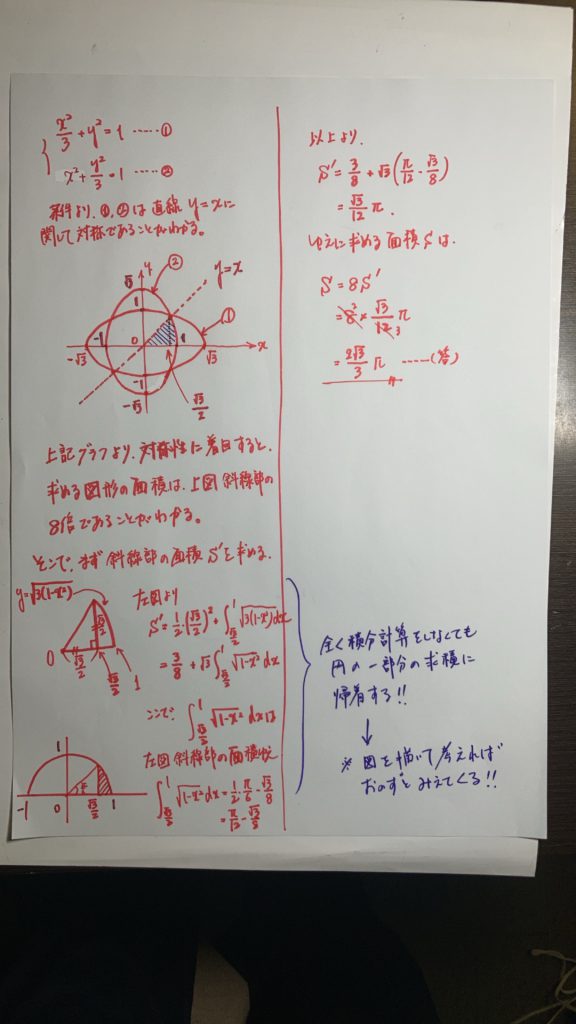 x²/3 + y² = 1 ……①
x² + y²/3 = 1 ……②
条件より、①,②は直線 y=xに
関して対称であることがわかる。
y
②
y=x
√3
1
①
-√3
-1
0
1
√3
x
-1
-√3
√3/2
上記グラフより、対称性に着目すると、
求める図形の面積は、上図斜線部の
8倍であることがわかる。
そこで、まず斜線部の面積S'を求める.
y=√3(1-x²)
√3/2
0
√3/2
√3/2
1
左図より
S' = 1/2·(√3/2)² + ∫_{√3/2}^{1} √3(1-x²) dx
= 3/8 + √3 ∫_{√3/2}^{1} √1-x² dx
ここで、∫_{√3/2}^{1} √1-x² dx は
左図斜線部の面積
∫_{√3/2}^{1} √1-x² dx = 1/2·π/6 - √3/8
= π/12 - √3/8
1
-1
0
√3/2
1
以上より、
S' = 3/8 + √3(π/12 - √3/8)
= √3/12 π.
ゆえに求める面積Sは、
S = 8S'
= 8² × √3/12 3 π
= 2√3/3 π ……(答)
全く積分計算をしなくても
円の一部分の求積に
帰着する!!
↓
※ 図を描いて考えれば
おのずとみえてくる!!